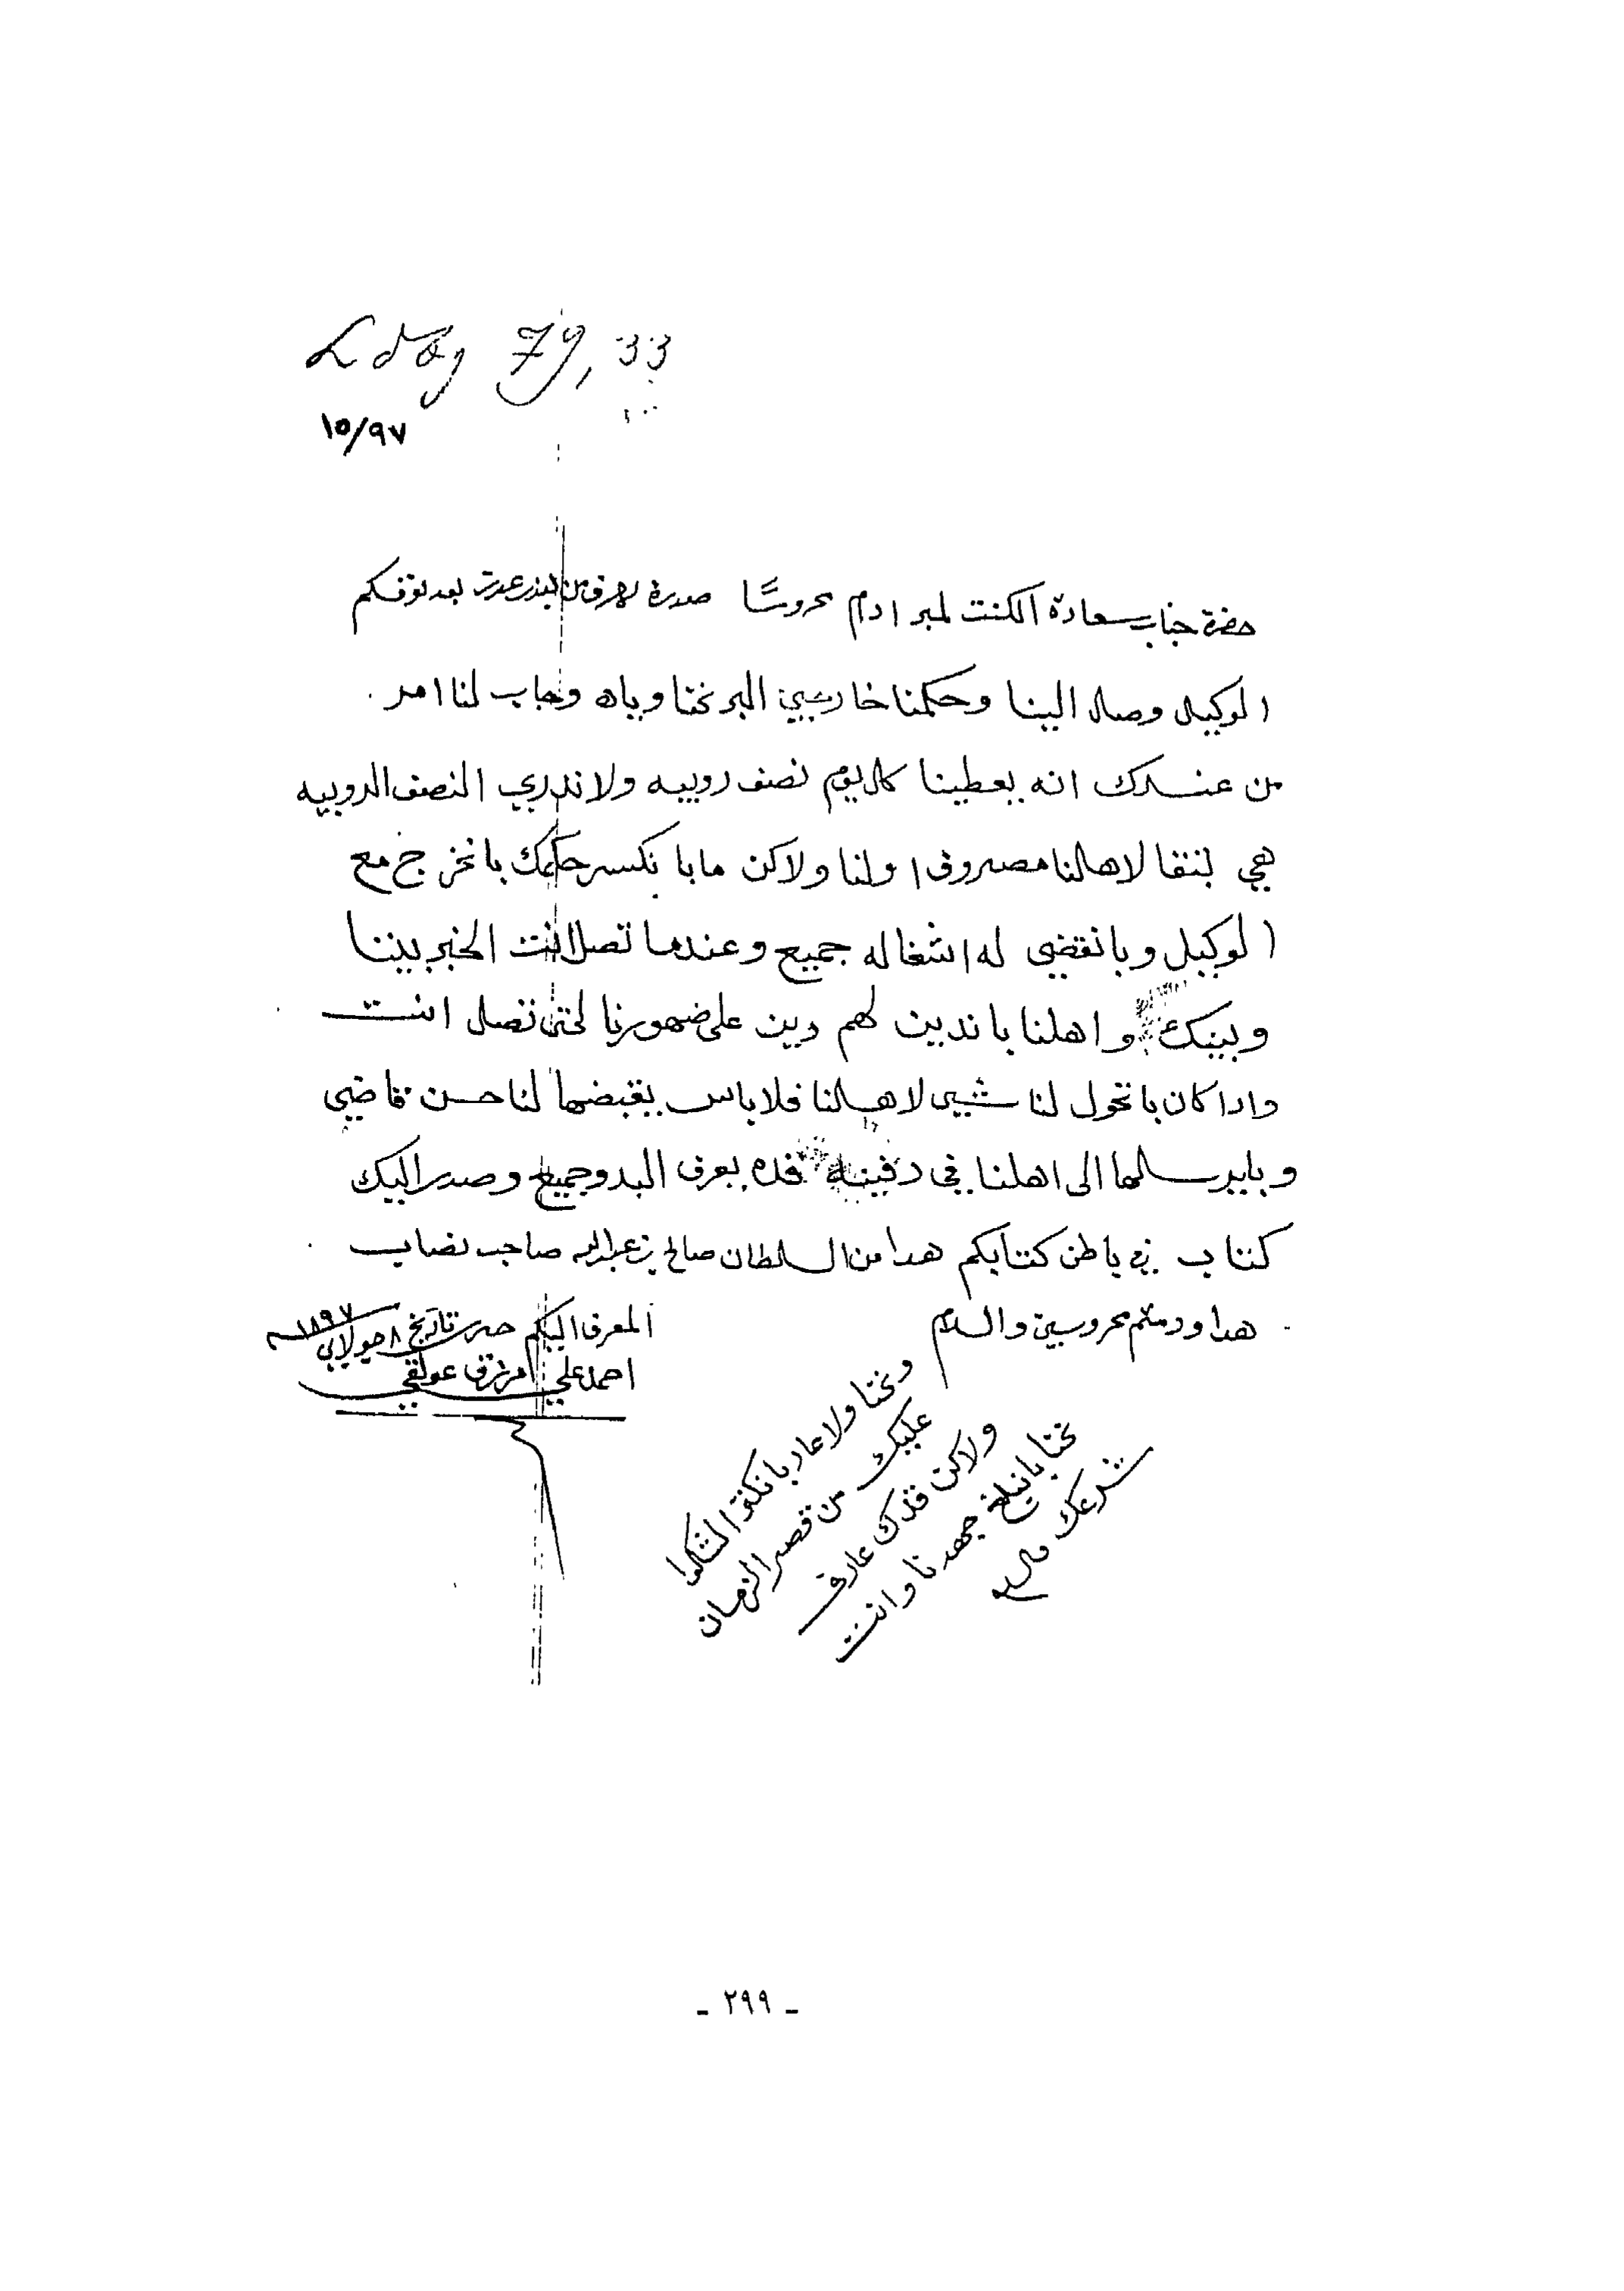 Ldög 79, 33
١٥/٩٧
حضرة جناب سعادة الكنت لمبر ادام محروسًا صدرة الاحرف من بندر عدن بعد توقفكم
الوكيل وصل الينا وحكمنا خارجين البر نحنا وياه وجاب لنا امر
من عندك انه يعطينا كل يوم نصف روبيه ولا ندري النصف الروبيه
هي لنفقا لاهلنا مصروف اولنا ولاكن ما با نكسر حكمك با نخرج مع
الوكيل وبا نقضي له اشغاله جميع وعندما تصل انت الخبر بيننا
وبينك واهلنا با ندين لهم دين على ضهورنا لحتى تصل انت
وادا كان با تحول لنا شيي لاهلنا فلا باس يقبضها لنا حسن قاضي
وبايرسلها الى اهلنا في دفينه قده يعرف البدو جميع وصدر اليك
كتاب في باطن كتابكم هدا من السلطان صالح بن عبدالله صاحب نصاب
هدا ودمتم محروسين والسلام
المعرف اليكم حرر تاريخ ٨ جولاي ١٨٩٧
احمد علي امرزق عولقي
ونحنا ولا عاد با نكثر الشكوا
عليك من قصر الزمان
ولاكن قدك عارف
نحنا با نبلغ جهدنا وانت
شرعك
- ٢٩٩ -